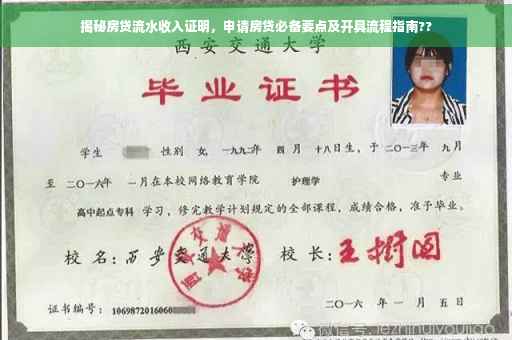 揭秘房贷流水收入证明，申请房贷必备要点及开具流程指南??
西安交通大学
毕业证书
学生 性别 女，一九九二年 四月 十八日生，于二〇一三年 九月
至 二〇一六年 一月在本校网络教育学院 护理学 专业
高中起点专科 学习，修完教学计划规定的全部课程，成绩合格，准予毕业。
校名：西安交通大学 校长：王树国
西安交通大学
证书编号：1069872016060 二〇一六年 一月 五日
微信号: jezhinuiyoujiao